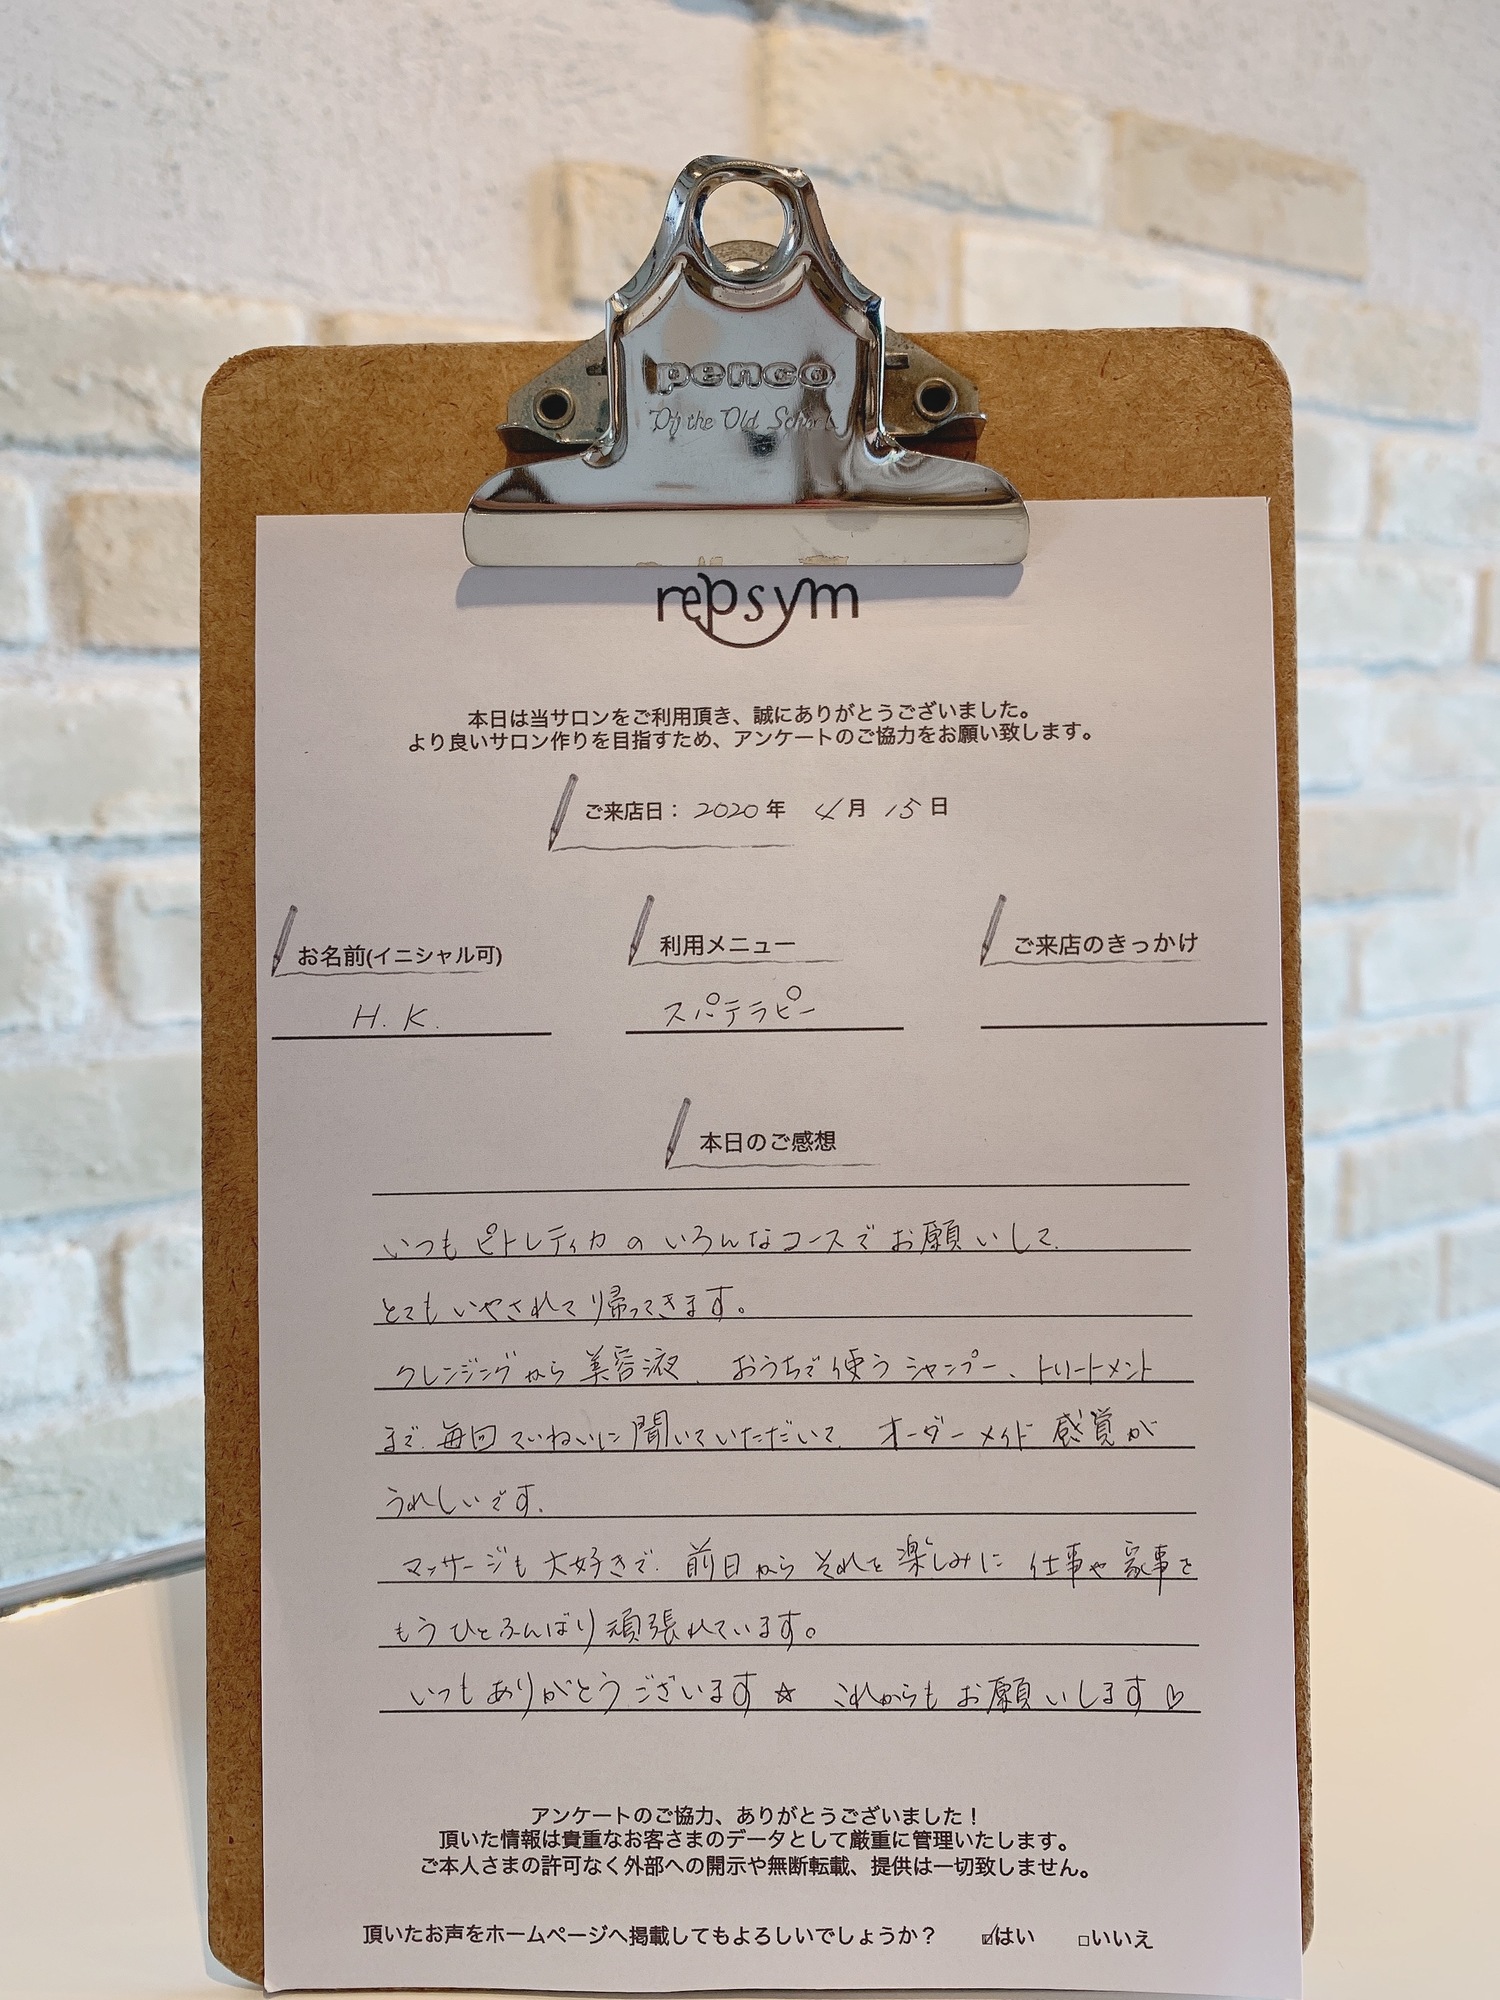 penco
Of the Old School
repsym
本日は当サロンをご利用頂き、誠にありがとうございました。
より良いサロン作りを目指すため、アンケートのご協力をお願い致します。
ご来店日： 2020年 4月 15日
お名前(イニシャル可) 利用メニュー ご来店のきっかけ
H. K. スパテラピー
本日のご感想
いつもピトレティカのいろんなコースでお願いして、
とてもいやされて帰ってきます。
クレンジングから美容液、おうちで使うシャンプー、トリートメント
まで、毎回ていねいに聞いていただいて、オーダーメイド感覚が
うれしいです。
マッサージも大好きで、前日からそれを楽しみに仕事や家事を
もうひとふんばり頑張れています。
いつもありがとうございます☆ これからもお願いします♡
アンケートのご協力、ありがとうございました！
頂いた情報は貴重なお客さまのデータとして厳重に管理いたします。
ご本人さまの許可なく外部への開示や無断転載、提供は一切致しません。
頂いたお声をホームページへ掲載してもよろしいでしょうか？ ☑はい □いいえ